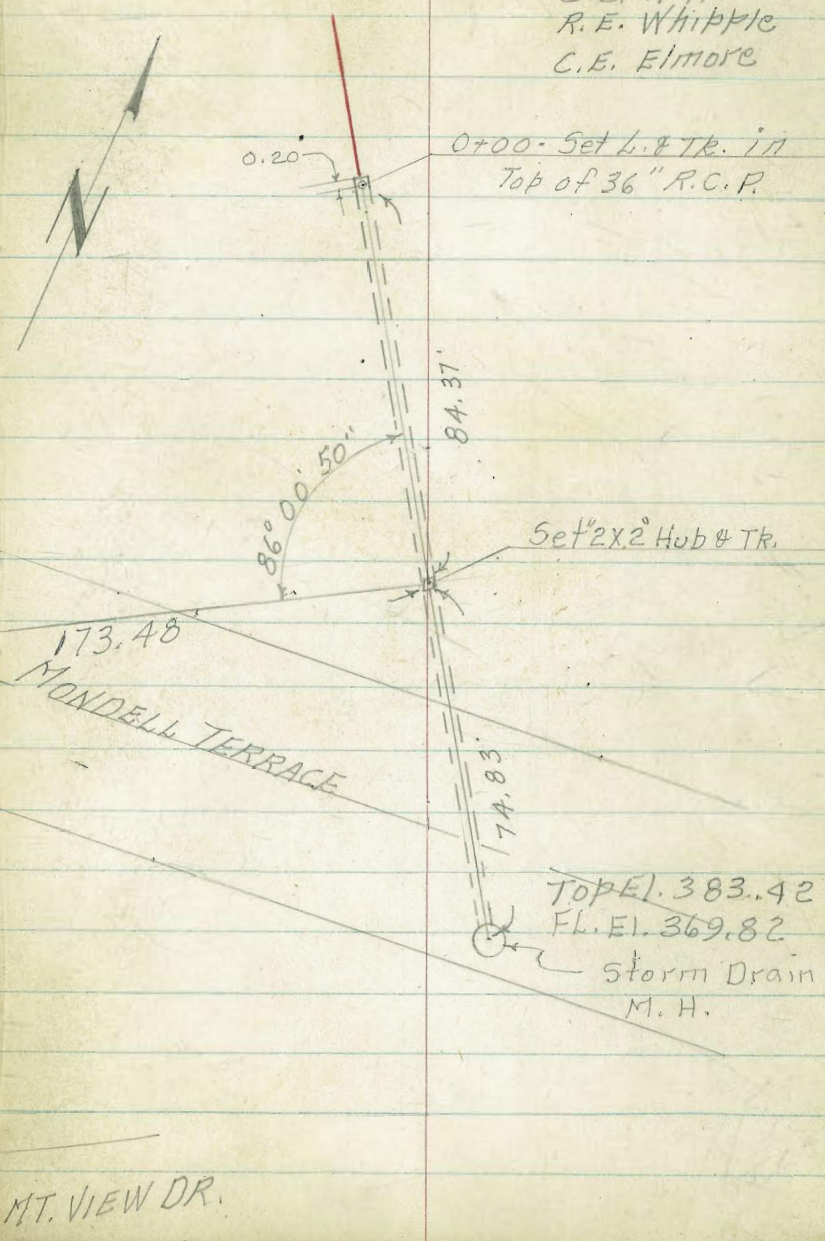 R. E. Whipple
C.E. Elmore
N
0.20'
0+00 - Set L. & Tk. in
Top of 36" R.C.P.
84.37'
86° 00' 50"
Set 2"X2" Hub & Tk.
173.48
MONDELL TERRACE
74.83'
Top El. 383.42
FL. El. 369.82
Storm Drain
M. H.
MT. VIEW DR.